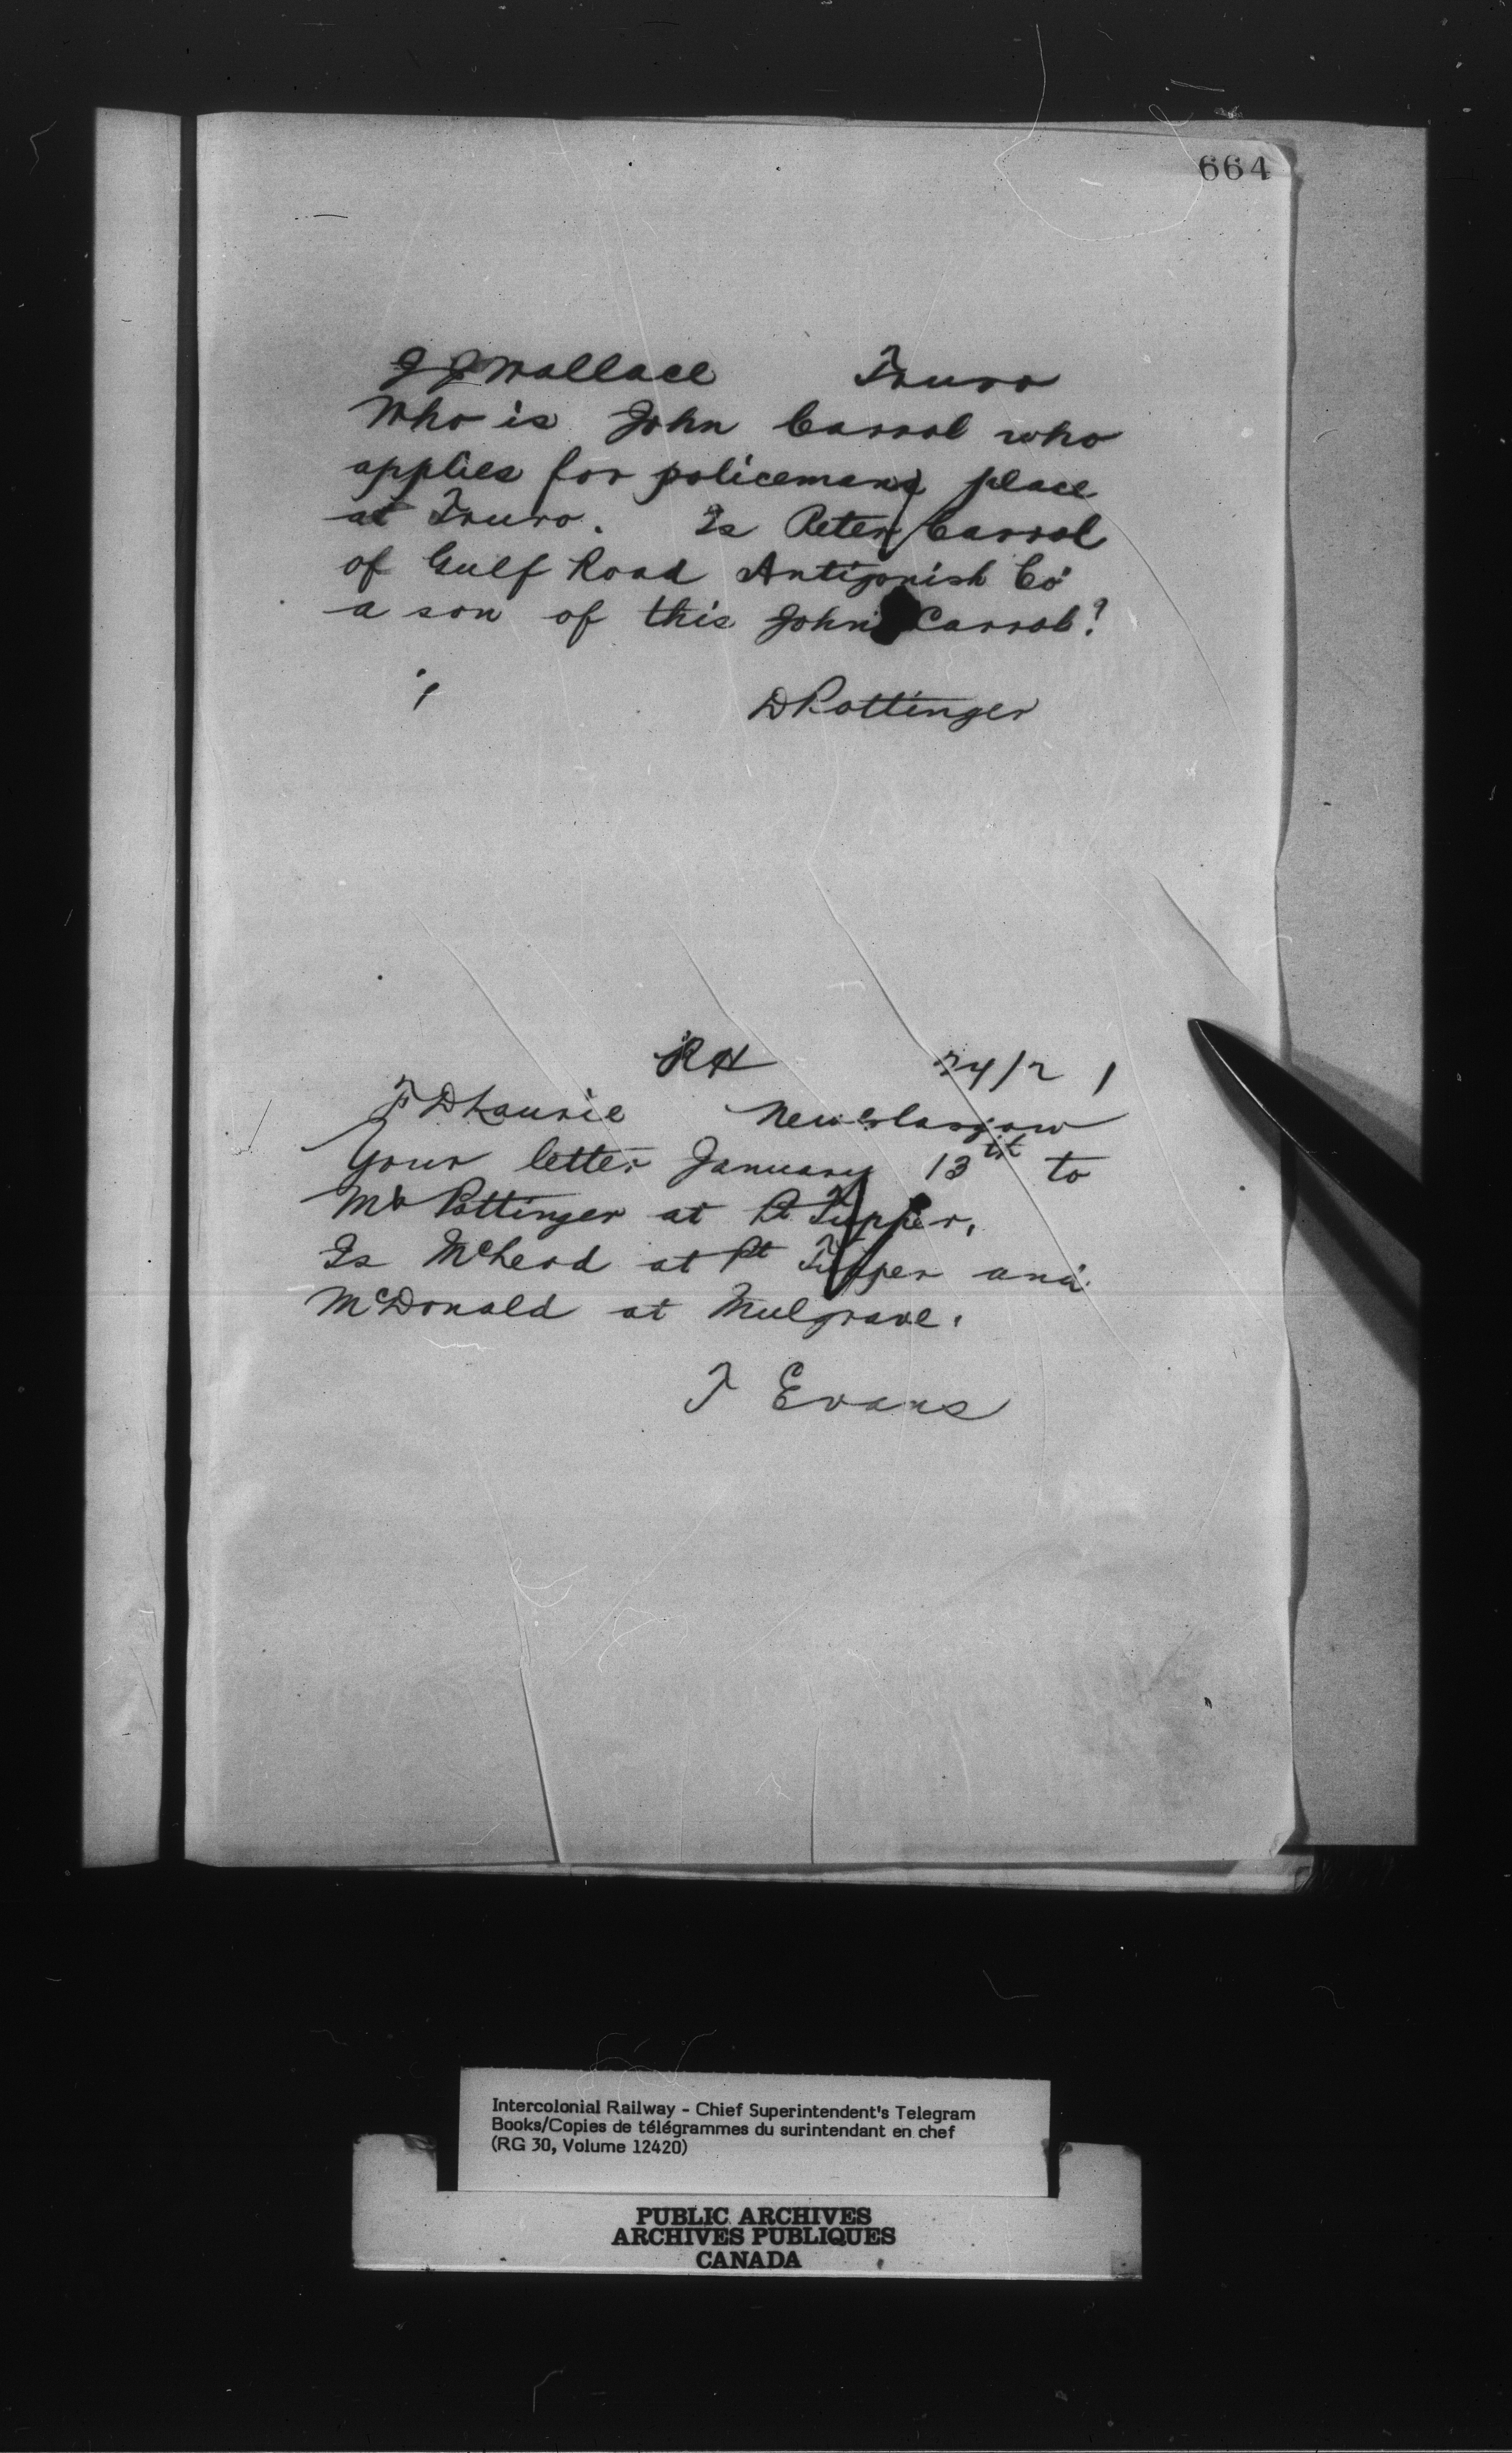 664
J J Wallace Truro
Who is John Carrol who
applies for policemans place
at Truro. Is Peter Carrol
of Gulf Road Antigonish Co
a son of this John Carrol?
D Pottinger
RH 24/2 1
F D Laurie New Glasgow
Your letter January 13th to
Mr Pottinger at Pt Tupper.
Is McLeod at Pt Tupper and
McDonald at Mulgrave.
T Evans
Intercolonial Railway - Chief Superintendent's Telegram
Books/Copies de télégrammes du surintendant en chef
(RG 30, Volume 12420)
PUBLIC ARCHIVES
ARCHIVES PUBLIQUES
CANADA